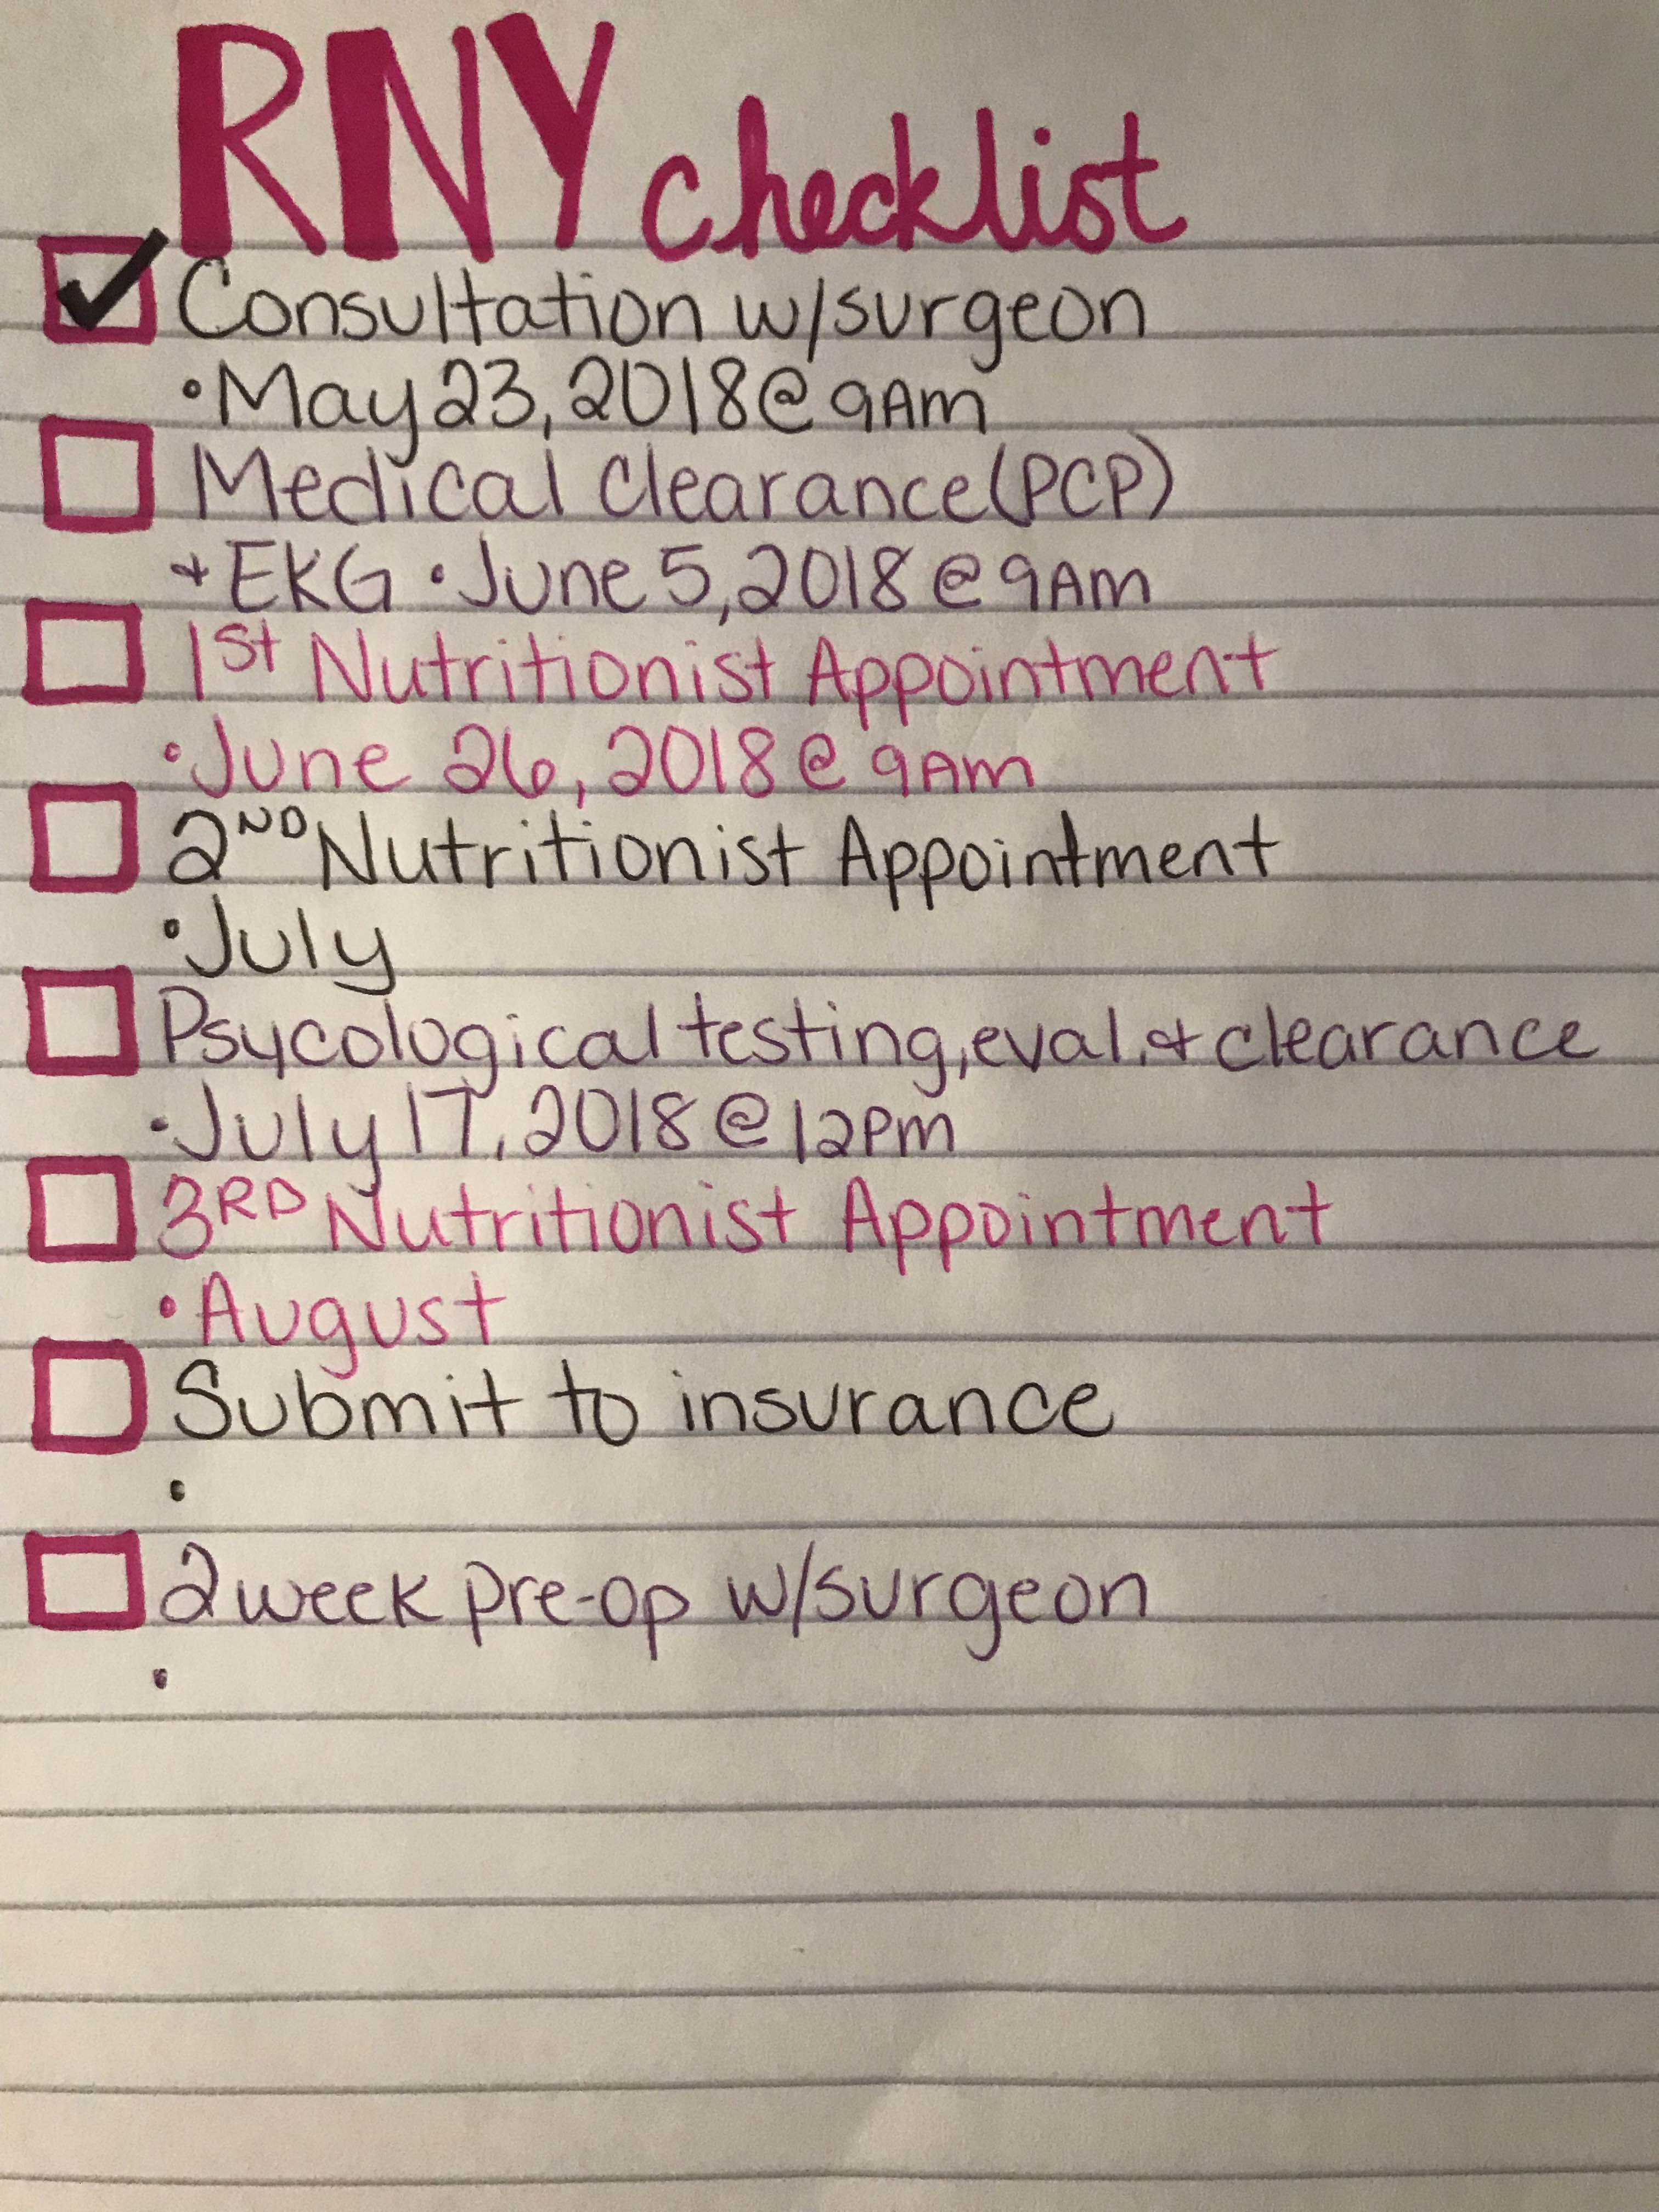 RNY checklist
✓ Consultation w/surgeon
• May 23, 2018 @ 9AM
Medical Clearance (PCP)
+ EKG • June 5, 2018 @ 9AM
1st Nutritionist Appointment
• June 26, 2018 @ 9AM
2ND Nutritionist Appointment
• July
Psycological testing, eval. & clearance
• July 17, 2018 @ 12PM
3RD Nutritionist Appointment
• August
Submit to insurance
•
2 week pre-op w/surgeon
•